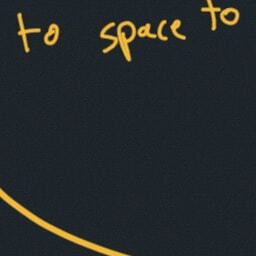 to space to